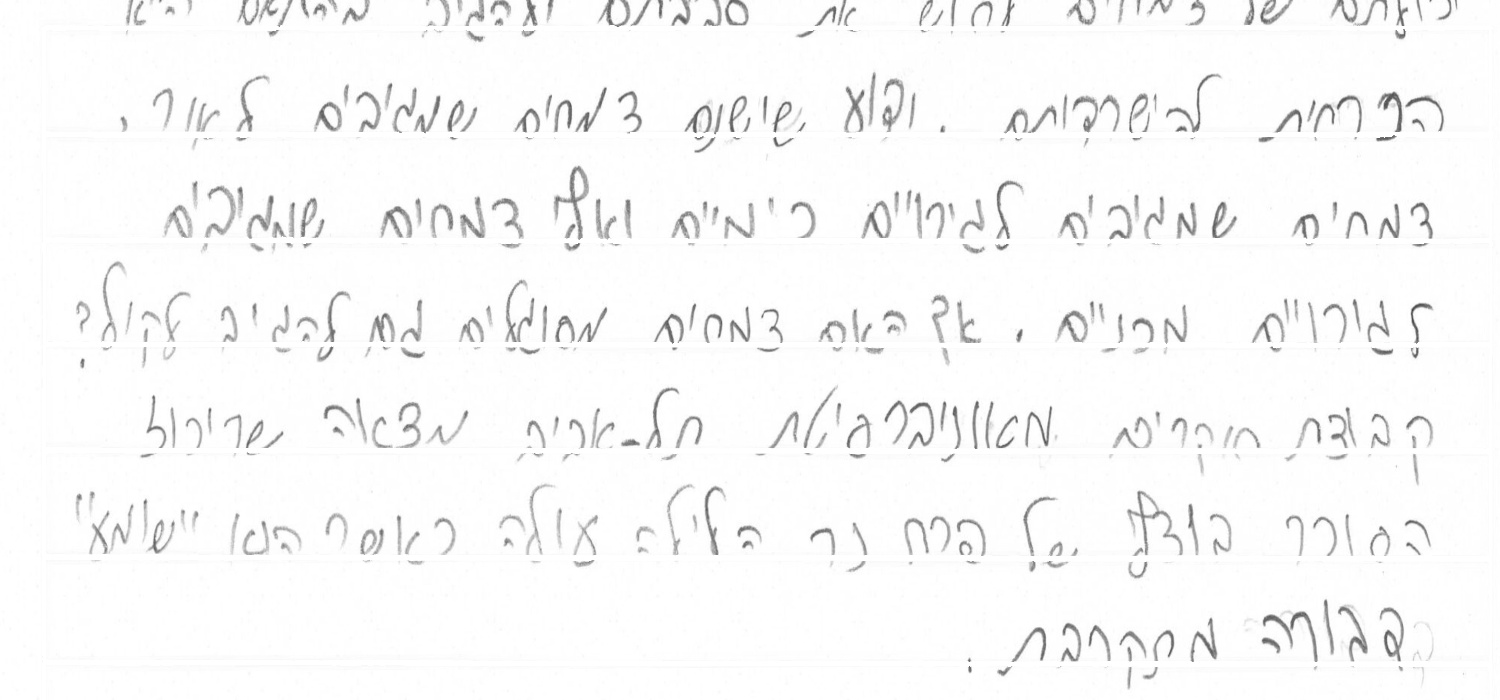 יכולתם של צמחים לחוש את סביבתם ולהגיב בהתאם היא
הכרחית להישרדותם. ידוע שישנם צמחים שמגיבים לאור,
צמחים שמגיבים לגירויים כימיים ואף צמחים שמגיבים
לגירויים מכניים. אך האם צמחים מסוגלים גם להגיב לקול?
קבוצת חוקרים מאוניברסיטת תל-אביב מצאה שריכוז
הסוכר בוצף של פרח נר הלילה עולה כאשר הוא "שומע"
דבורה מתקרבת.